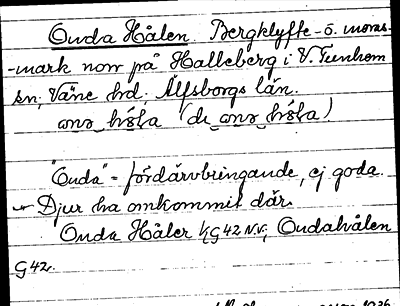 Onda Hålen. Bergklyfte- o. moras-
-mark norr på Halleberg i V. Tunhem
sn; Väne hd. Älfsborgs län.
"Onda" = fördärvbringande, ej goda.
Djur ha omkommit där.
Onda Håler 1/G42 N.V.; Ondahålen
G42.